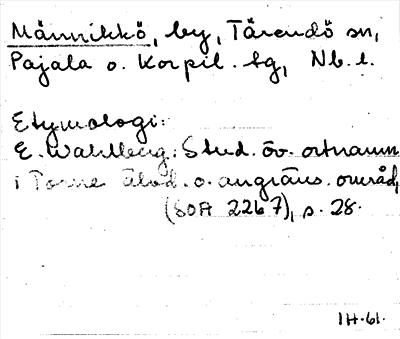 Männikkö, by, Tärendö sn,
Pajala o. Korpil. tg, Nb. l.
Etymologi:
E. Wahlberg: Stud. öv. ortnamn
i Torne älvd. o. angräns. områd.
(SOA 2267), s. 28.
IH-61.